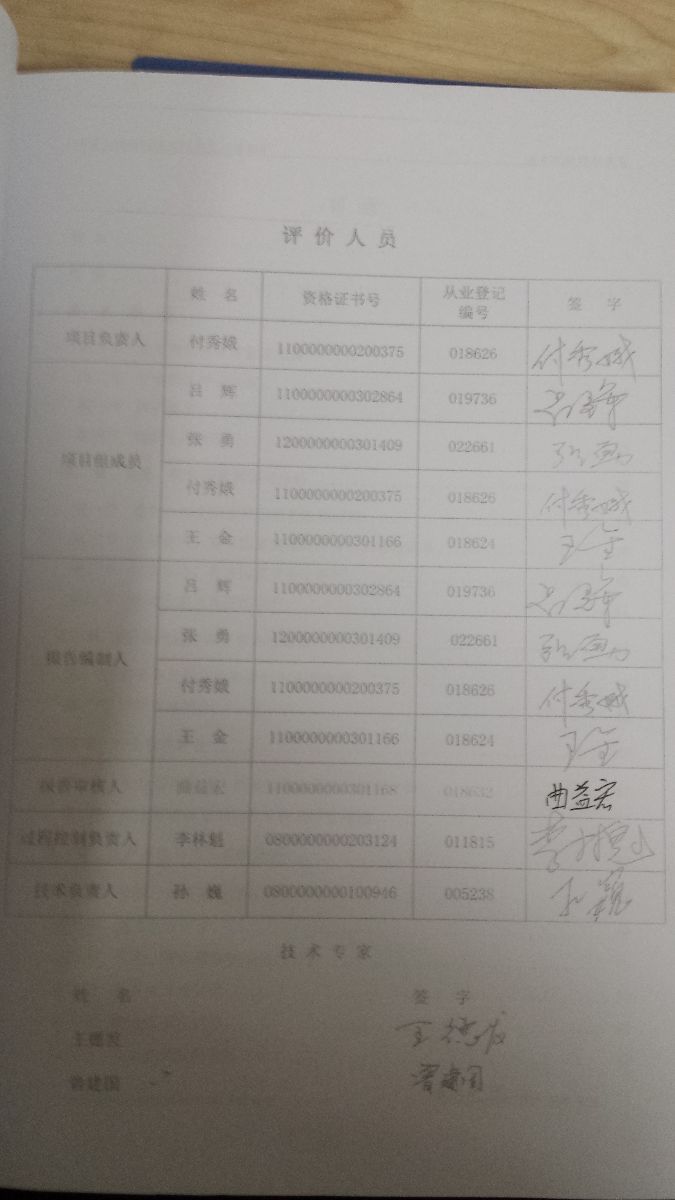 评价人员
姓 名 资格证书号 从业登记编号 签 字
项目负责人 付秀娥 1100000000200375 018626 付秀娥
项目组成员 吕 辉 1100000000302864 019736
张 勇 1200000000301409 022661 张勇
付秀娥 1100000000200375 018626 付秀娥
王 金 1100000000301166 018624 王金
报告编制人 吕 辉 1100000000302864 019736
张 勇 1200000000301409 022661 张勇
付秀娥 1100000000200375 018626 付秀娥
王 金 1100000000301166 018624 王金
报告审核人 曲益宏 1100000000301168 018632 曲益宏
过程控制负责人 李林魁 0800000000203124 011815 李林魁
技术负责人 孙 巍 0800000000100946 005238 孙巍
技术专家
姓 名 签 字
王德发 王德发
曾建国 曾建国